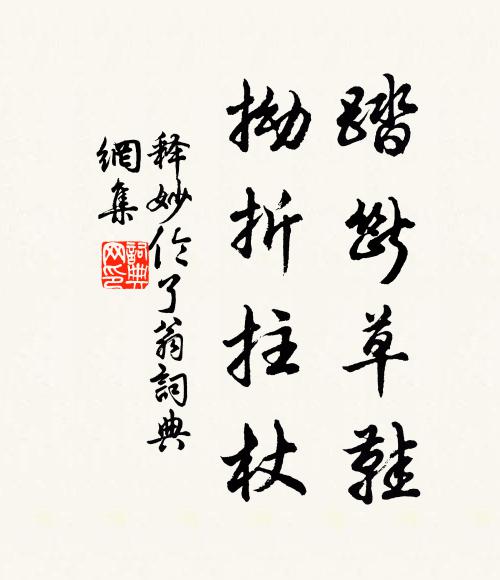 踏断草鞋
拗折拄杖
释妙伦了翁詞典
網集
詞典網印